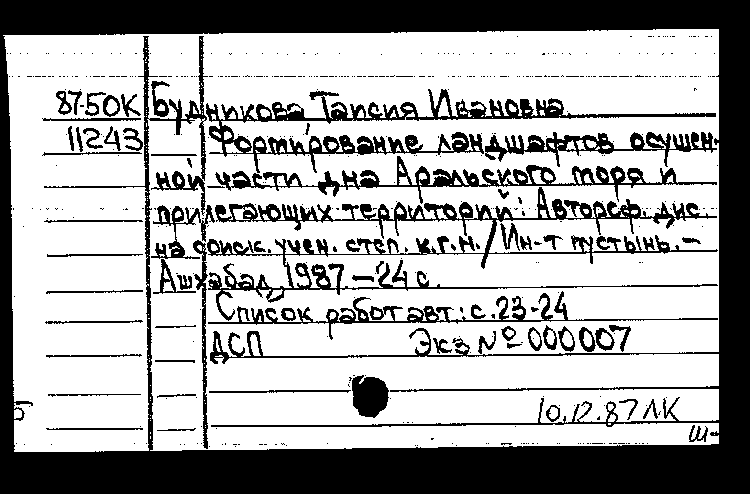 87-50К Будникова Таисия Ивановна.
11243 Формирование ландшафтов осушен-
ной части дна Аральского моря и
прилегающих территорий: Автореф. дис.
на соиск. учен. степ. к.г.н./Ин-т пустынь.–
Ашхабад, 1987 – 24 с.
Список работ авт.: с. 23-24
ДСП Экз № 000007
10.12.87 ЛК
Ш-